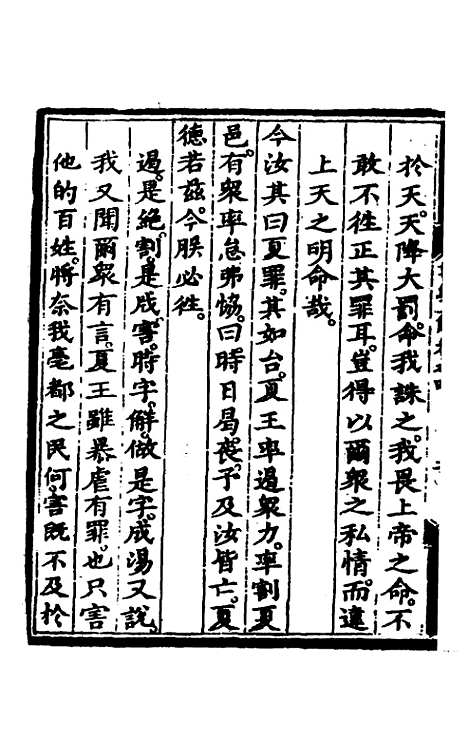 於天天降大罰命我誅之我畏上帝之命不
敢不徃正其罪耳豈得以爾衆之私情而違
上天之明命哉
今汝其曰夏罪其如台夏王率遏衆力率割夏
邑有衆率怠弗恊曰時日曷喪予及汝皆亡夏
德若茲今朕必徃
遏是絶割是戕害時字解做是字成湯又說
我又聞爾衆有言夏王雖暴虐有罪也只害
他的百姓將奈我亳都之民何害既不及於